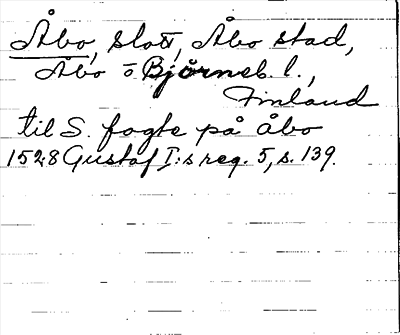 Åbo, slott, Åbo stad,
Åbo o Björneb. l.,
Finland
til S. fogte på åbo
1528 Gustaf I:s reg. 5, s. 139.